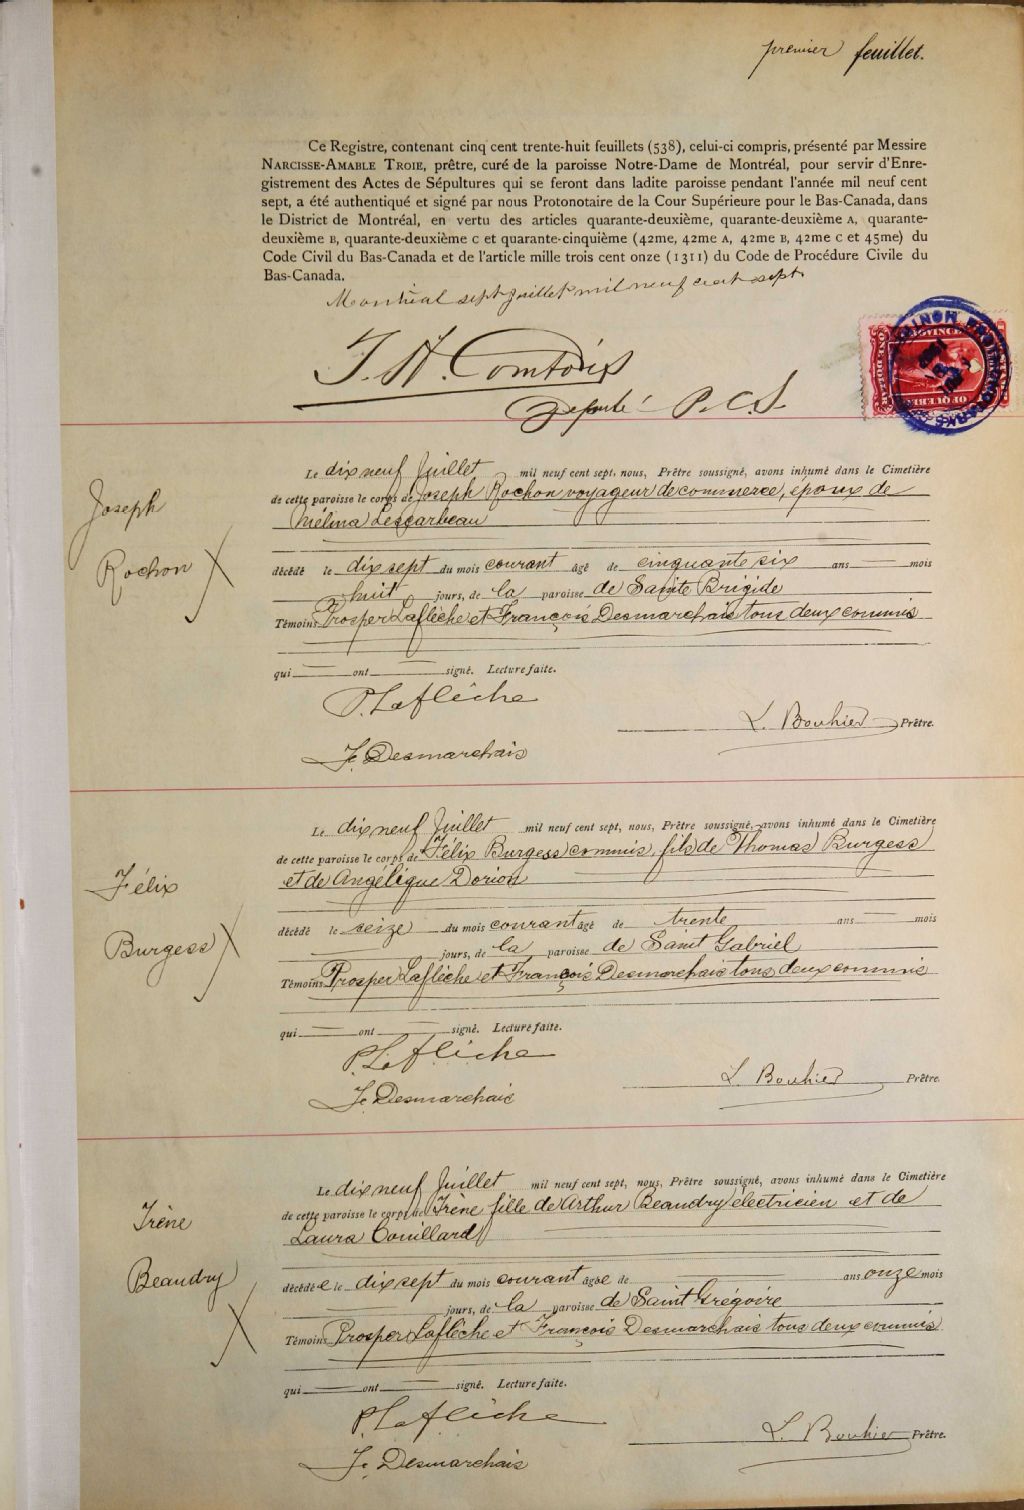 premier feuillet.
Ce Registre, contenant cinq cent trente-huit feuillets (538), celui-ci compris, présenté par Messire
Narcisse-Amable Troie, prêtre, curé de la paroisse Notre-Dame de Montréal, pour servir d'Enre-
gistrement des Actes de Sépultures qui se feront dans ladite paroisse pendant l'année mil neuf cent
sept, a été authentiqué et signé par nous Protonotaire de la Cour Supérieure pour le Bas-Canada, dans
le District de Montréal, en vertu des articles quarante-deuxième, quarante-deuxième A, quarante-
deuxième B, quarante-deuxième C et quarante-cinquième (42me, 42me A, 42me B, 42me C et 45me) du
Code Civil du Bas-Canada et de l'article mille trois cent onze (1311) du Code de Procédure Civile du
Bas-Canada.
Montréal sept juillet mil neuf cent sept
J. H. Comtois
Député P. C. S.
ONE DOLLAR
Joseph
Rochon
Le dix neuf Juillet mil neuf cent sept, nous, Prêtre soussigné, avons inhumé dans le Cimetière
de cette paroisse le corps de Joseph Rochon voyageur de commerce, époux de
Mélina Lescarbeau
décédé le dix sept du mois courant âgé de cinquante six ans mois
huit jours, de la paroisse de Sainte Brigide
Témoins Prosper Laflèche et François Desmarchais tous deux commis
qui ont signé. Lecture faite.
P. Laflèche
L. Bouhier Prêtre.
F. Desmarchais
Félix
Burgess
Le dix neuf Juillet mil neuf cent sept, nous, Prêtre soussigné, avons inhumé dans le Cimetière
de cette paroisse le corps de Félix Burgess commis, fils de Thomas Burgess
et de Angélique Dorion
décédé le seize du mois courant âgé de trente ans mois
jours, de la paroisse de Saint Gabriel
Témoins Prosper Laflèche et François Desmarchais tous deux commis
qui ont signé. Lecture faite.
P. Laflèche
L. Bouhier Prêtre.
F. Desmarchais
Irène
Beaudry
Le dix neuf Juillet mil neuf cent sept, nous, Prêtre soussigné, avons inhumé dans le Cimetière
de cette paroisse le corps de Irène fille de Arthur Beaudry électricien et de
Laura Couillard
décédée le dix sept du mois courant âgée de ans onze mois
jours, de la paroisse de Saint Grégoire
Témoins Prosper Laflèche et François Desmarchais tous deux commis
qui ont signé. Lecture faite.
P. Laflèche
L. Bouhier Prêtre.
F. Desmarchais